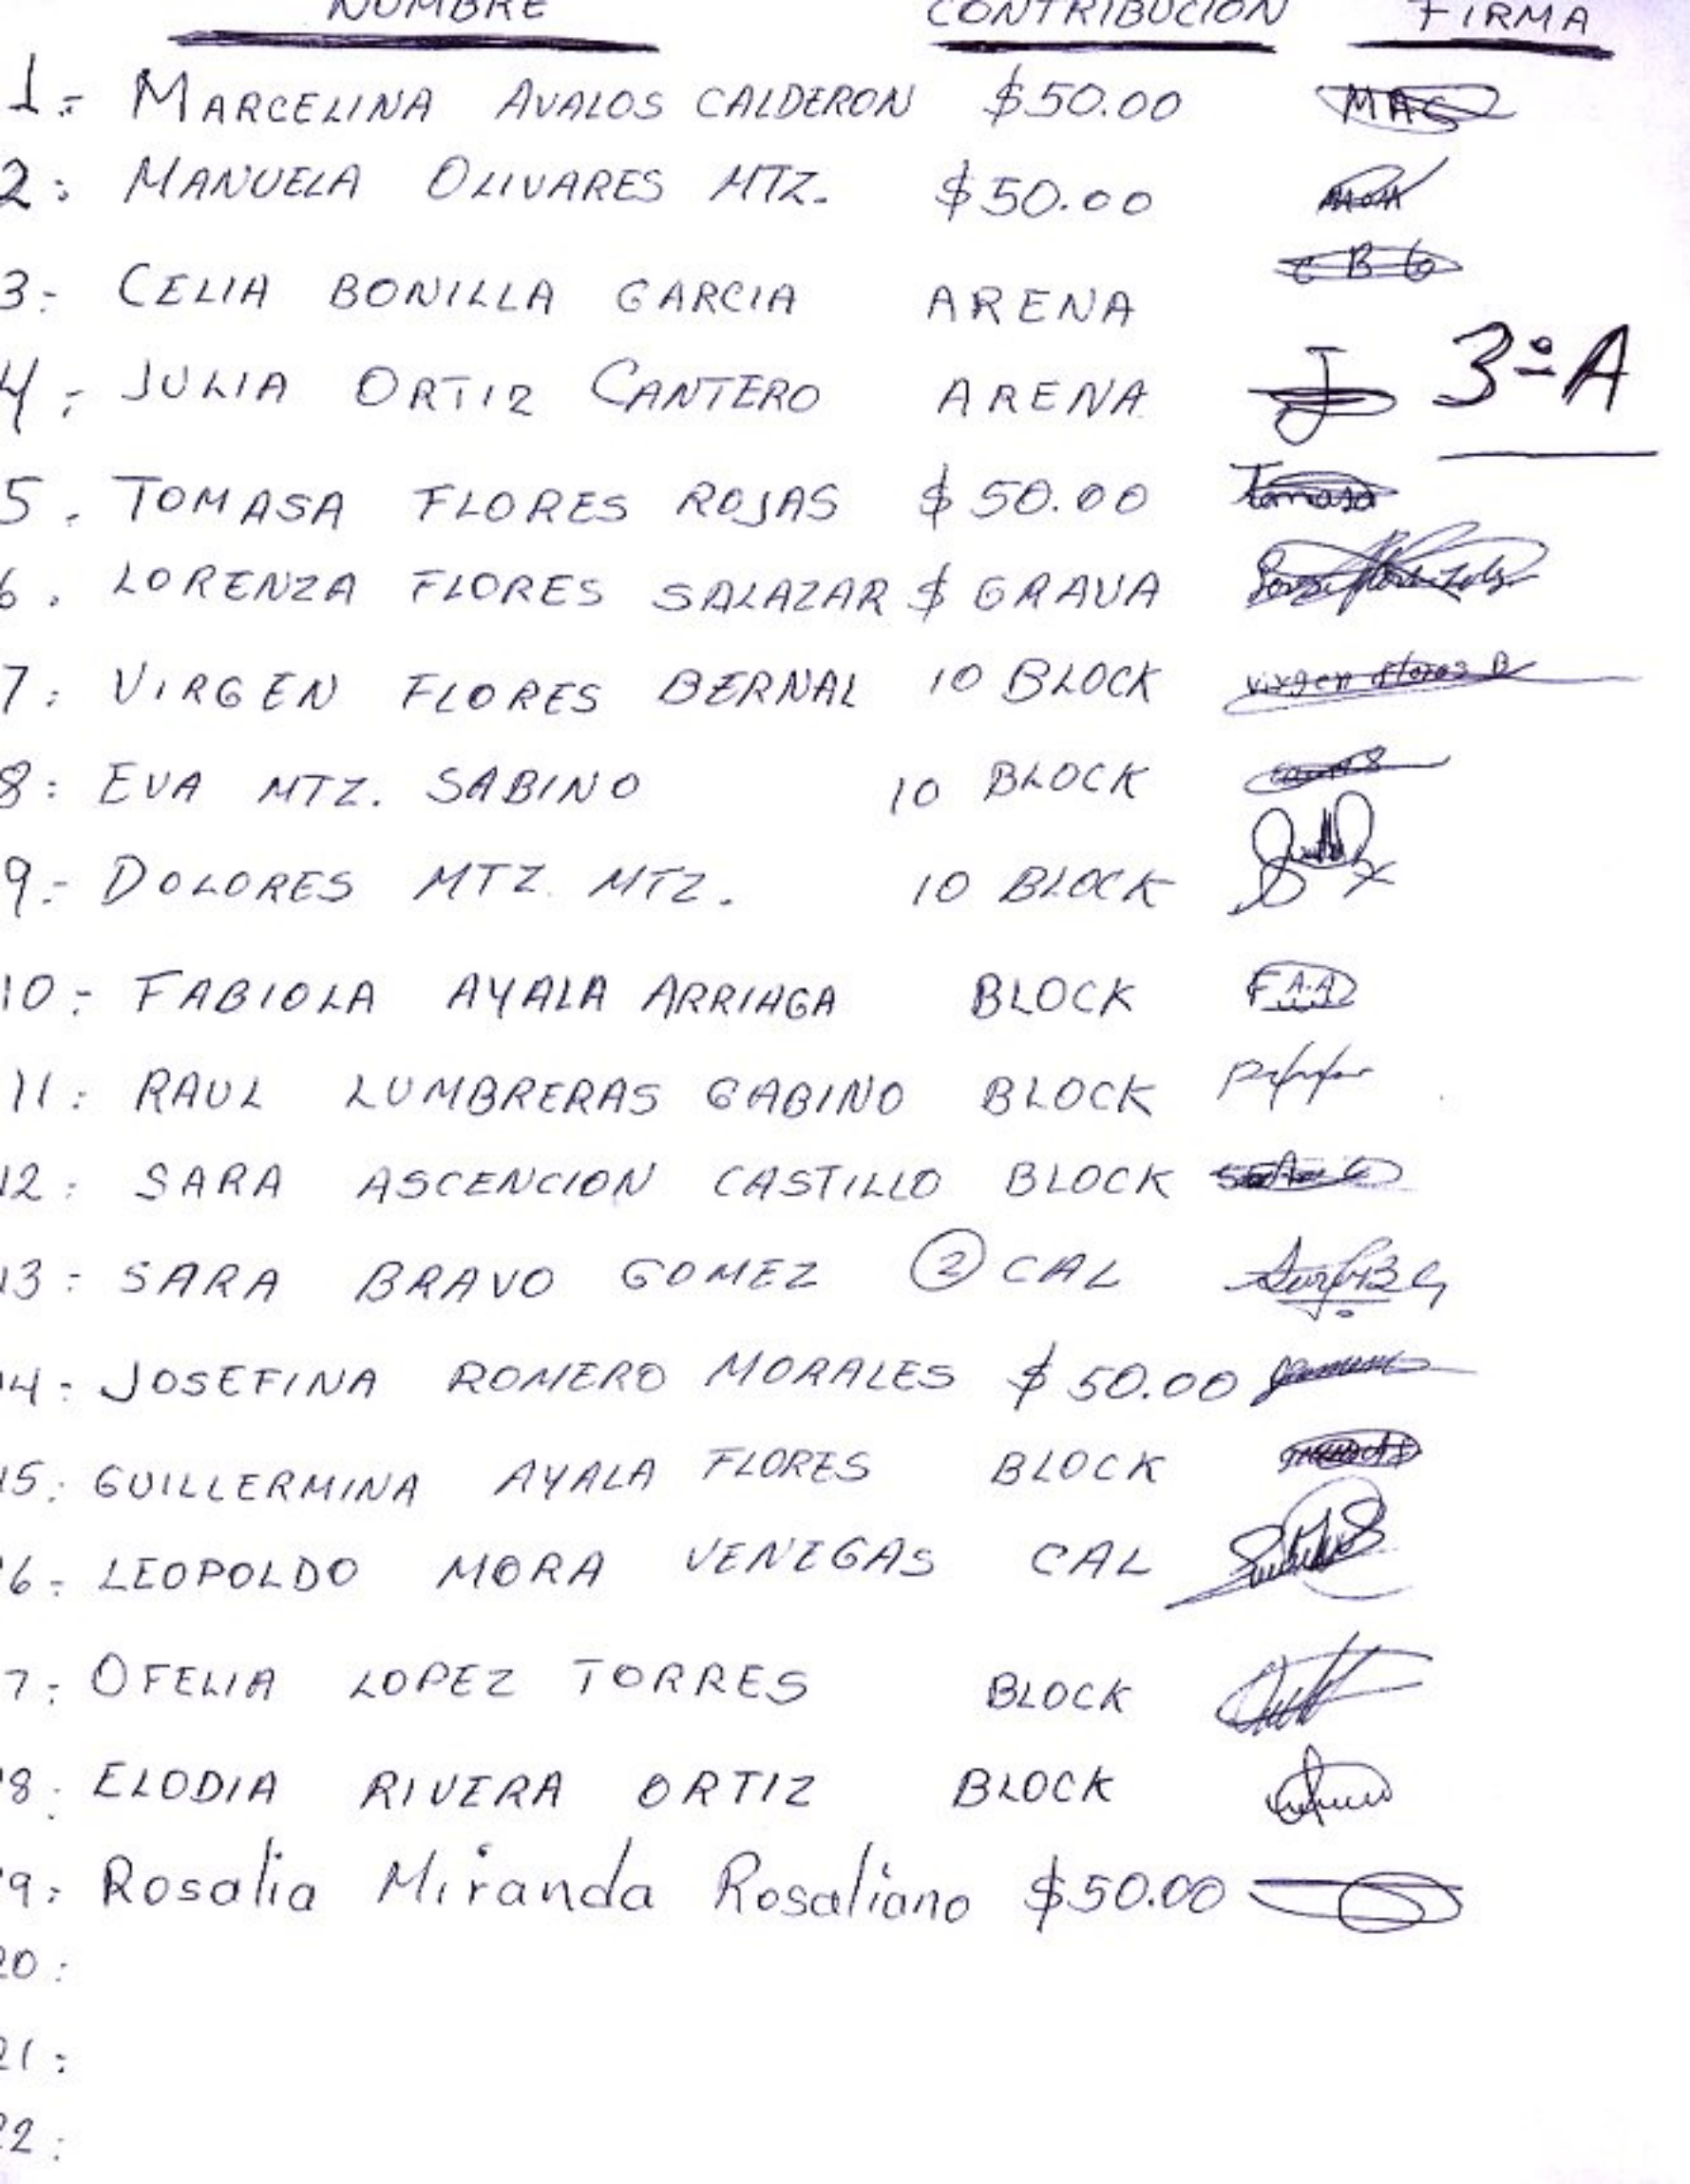 NOMBRE CONTRIBUCION FIRMA
1.- MARCELINA AVALOS CALDERON $50.00 MAC
2: MANUELA OLIVARES MTZ. $50.00
3.- CELIA BONILLA GARCIA ARENA C B G
4.- JULIA ORTIZ CANTERO ARENA J 3º A
5. TOMASA FLORES ROJAS $50.00 Tomasa
6. LORENZA FLORES SALAZAR $ GRAVA
7: VIRGEN FLORES BERNAL 10 BLOCK virgen flores B
8: EVA MTZ. SABINO 10 BLOCK
9.- DOLORES MTZ. MTZ. 10 BLOCK
10.- FABIOLA AYALA ARRIAGA BLOCK F.A.A
11: RAUL LUMBRERAS GABINO BLOCK
12: SARA ASCENCION CASTILLO BLOCK
13: SARA BRAVO GOMEZ 2 CAL
14.- JOSEFINA ROMERO MORALES $50.00
15: GUILLERMINA AYALA FLORES BLOCK
16.- LEOPOLDO MORA VENEGAS CAL
7.- OFELIA LOPEZ TORRES BLOCK
18: ELODIA RIVERA ORTIZ BLOCK
19: Rosalia Miranda Rosaliano $50.00
20:
21:
22: